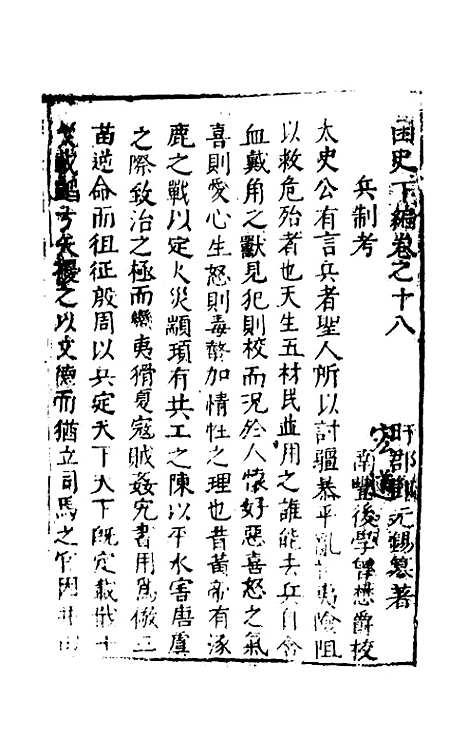 函史下編卷之十八
盱郡鄧元錫纂著
南豐後學曾懋爵校
兵制考
太史公有言兵者聖人所以討彊恭平亂世夷險阻
以救危殆者也天生五材民並用之誰能去兵自含
血戴角之獸見犯則校而況於人懷好惡喜怒之氣
喜則愛心生怒則毒螫加情性之理也昔黃帝有涿
鹿之戰以定火災顓頊有共工之陳以平水害唐虞
之際致治之極而蠻夷猾夏寇賊姦宄書用為儆三
苗逆命而徂征殷周以兵定天下天下既定載戢干
之以文德而猶立司馬之官因井田